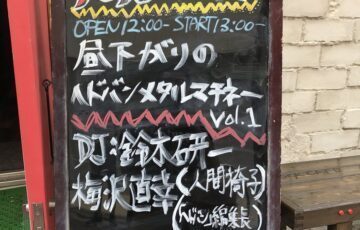 OPEN12:00- START13:00-
昼下がりの
ヘドバンメタルマチネー
VOL.1
DJ:鈴木研一
(人間椅子)
梅沢直幸
(ヘドバン編集長)